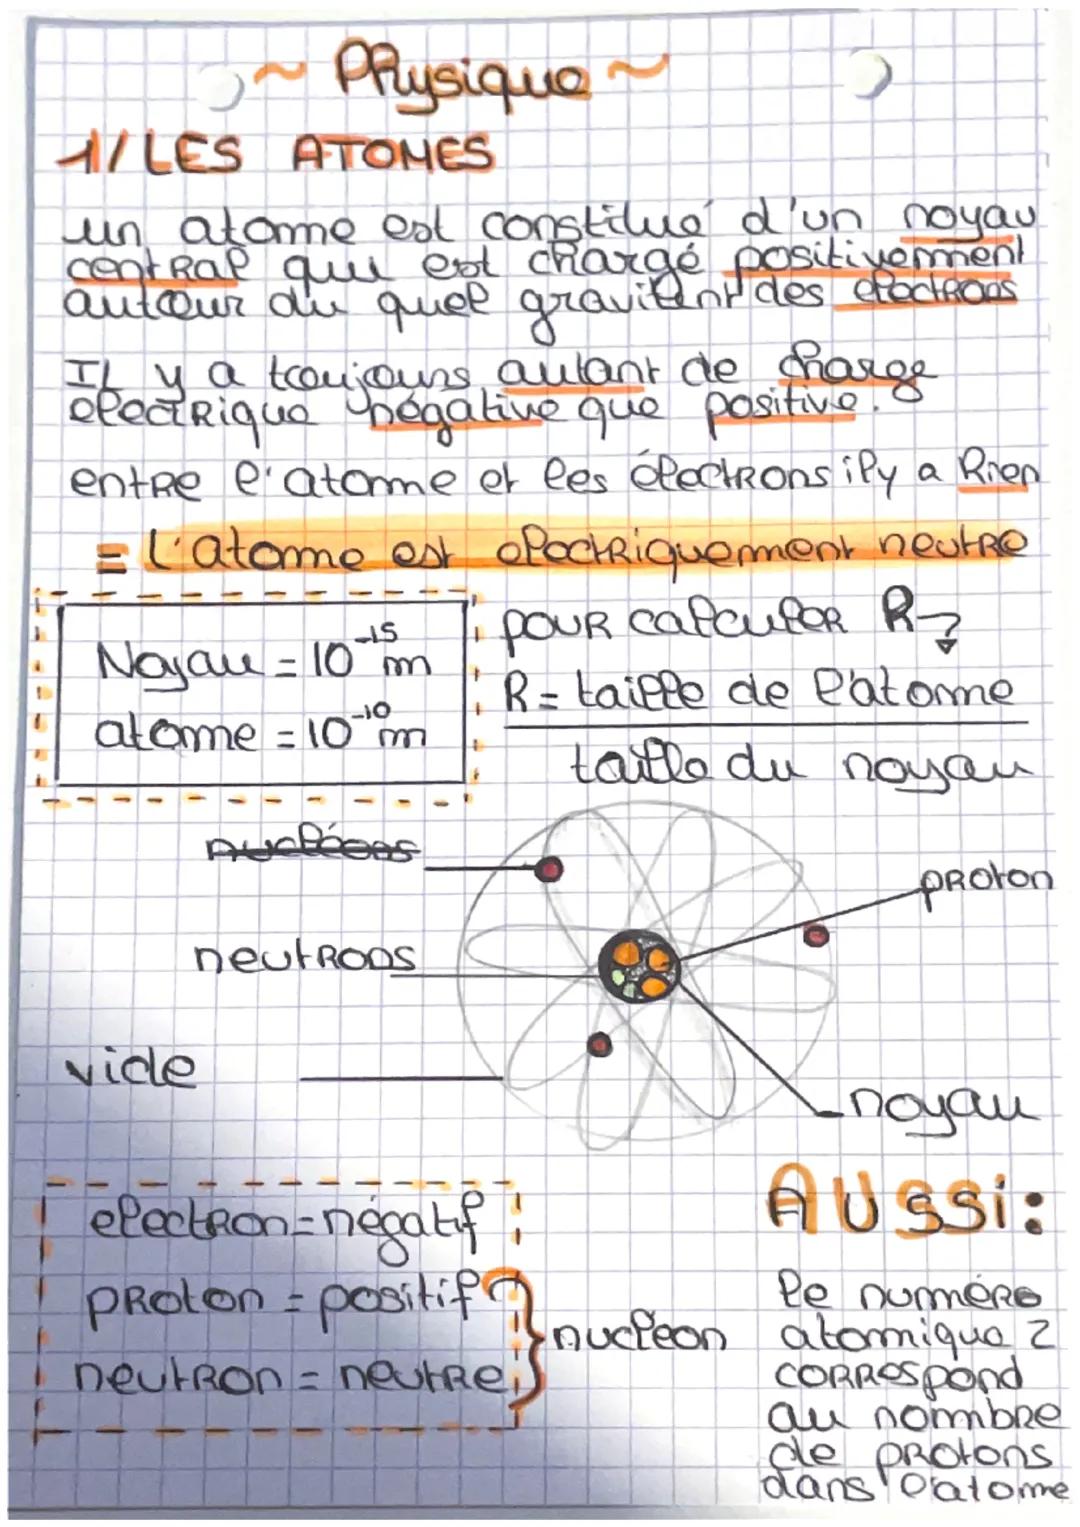 ~ Physique ~
1/ LES ATOMES
un atome est constitué d'un noyau
central qui est chargé positivement
autour du quel gravitent des electrons
IL y a toujours autant de charge
electrique négative que positive.
entre l'atome et les électrons ily a Rien
= L'atome est electriquement neutre
Noyau = 10⁻¹⁵ m
atome = 10⁻¹⁰ m
pour calculer R
R = taille de l'atome
taille du noyau
nucléons
proton
neutrons
vide
noyau
electron = négatif
proton = positif
neutron = neutre
nucleon
AUSSi :
le numéro
atomique Z
correspond
au nombre
de protons
dans l'atome